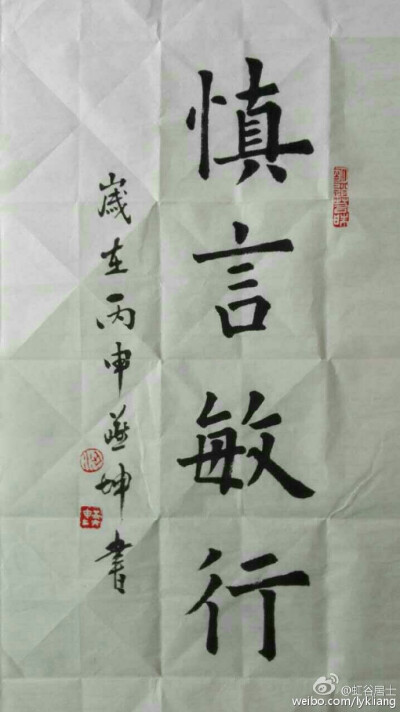 慎言敏行
歲在丙申燕坤書
@虹谷居士
weibo.com/lykliang